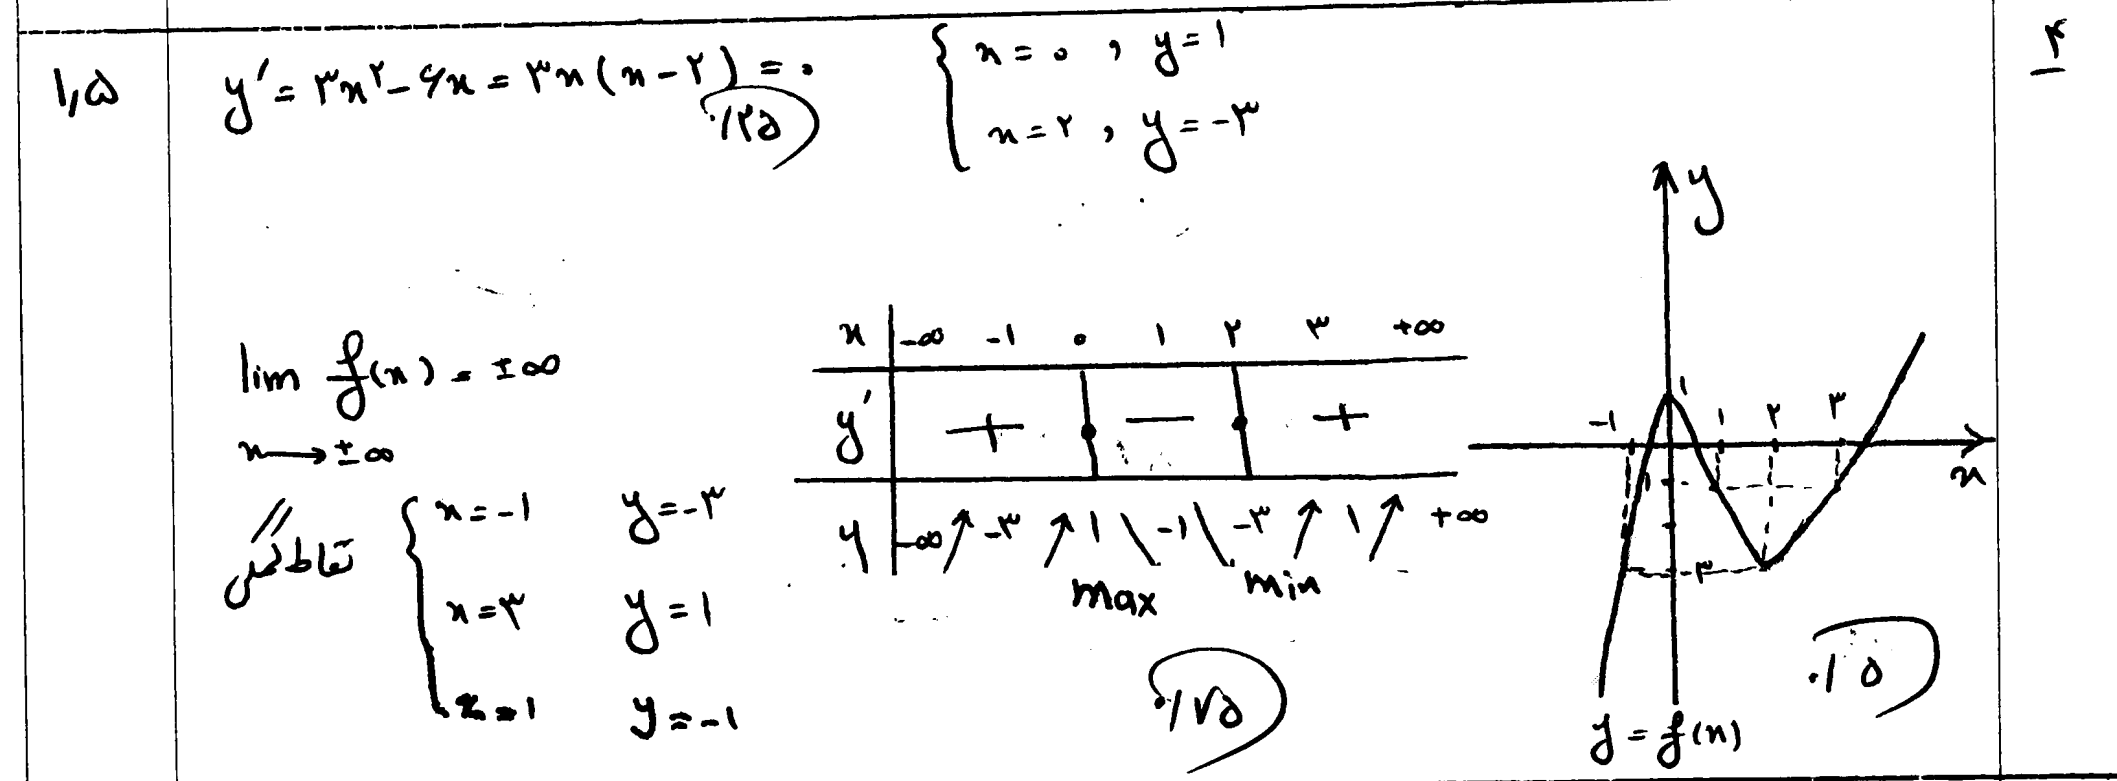 ۱,۵
y′ = ۳x^۲ − ۶x = ۳x(x − ۲) = ۰
۰/۲۵
x = ۰ , y = ۱
x = ۲ , y = −۳
۴
lim f(x) = ±∞
x → ±∞
نقاط کمکی
x = −۱ y = −۳
x = ۳ y = ۱
x = ۱ y = −۱
x −∞ −۱ ۰ ۱ ۲ ۳ +∞
y′ + − +
y −∞ ↗ −۳ ↗ ۱ ↘ −۱ ↘ −۳ ↗ ۱ ↗ +∞
max min
۰/۷۵
y
۱
−۱ ۱ ۲ ۳
x
−۳
۰/۵
y = f(x)